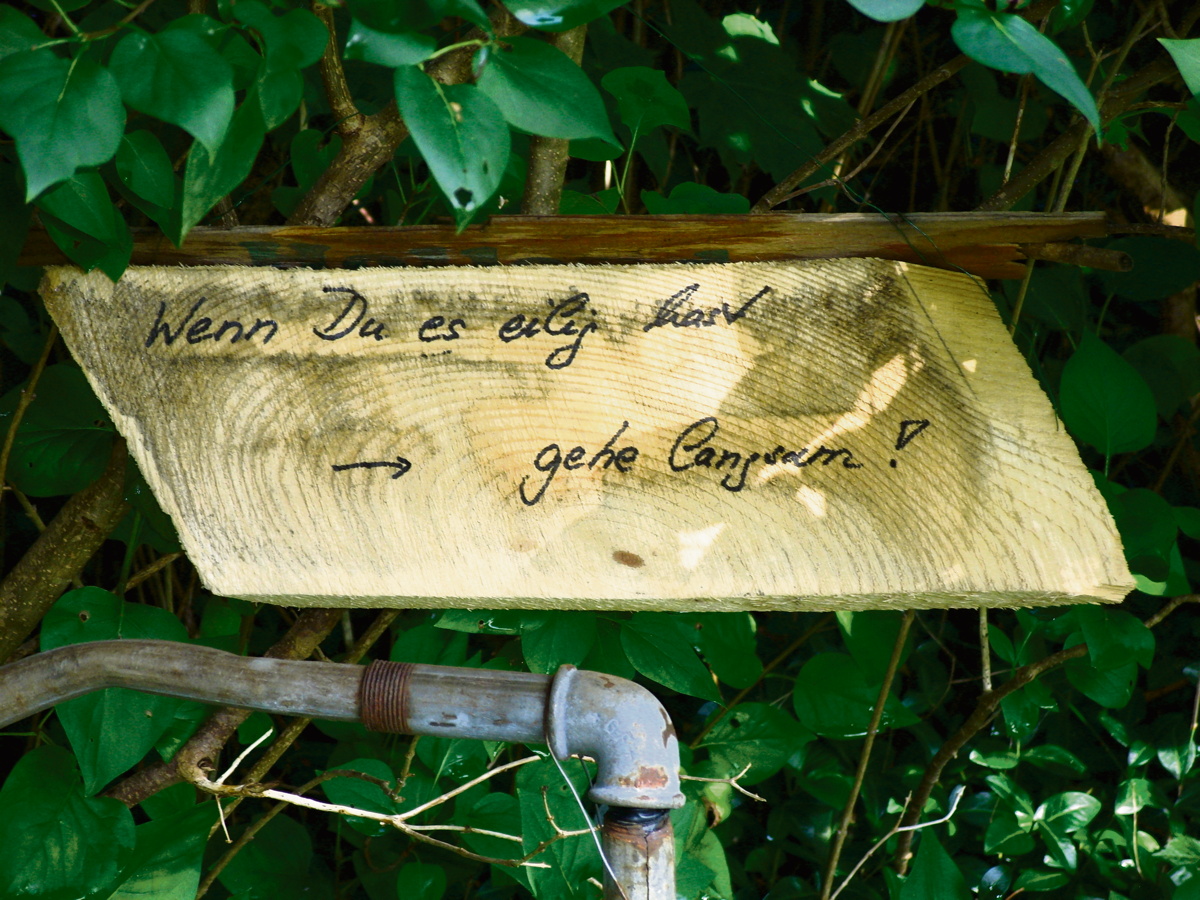 Wenn Du es eilig hast
→ gehe langsam!